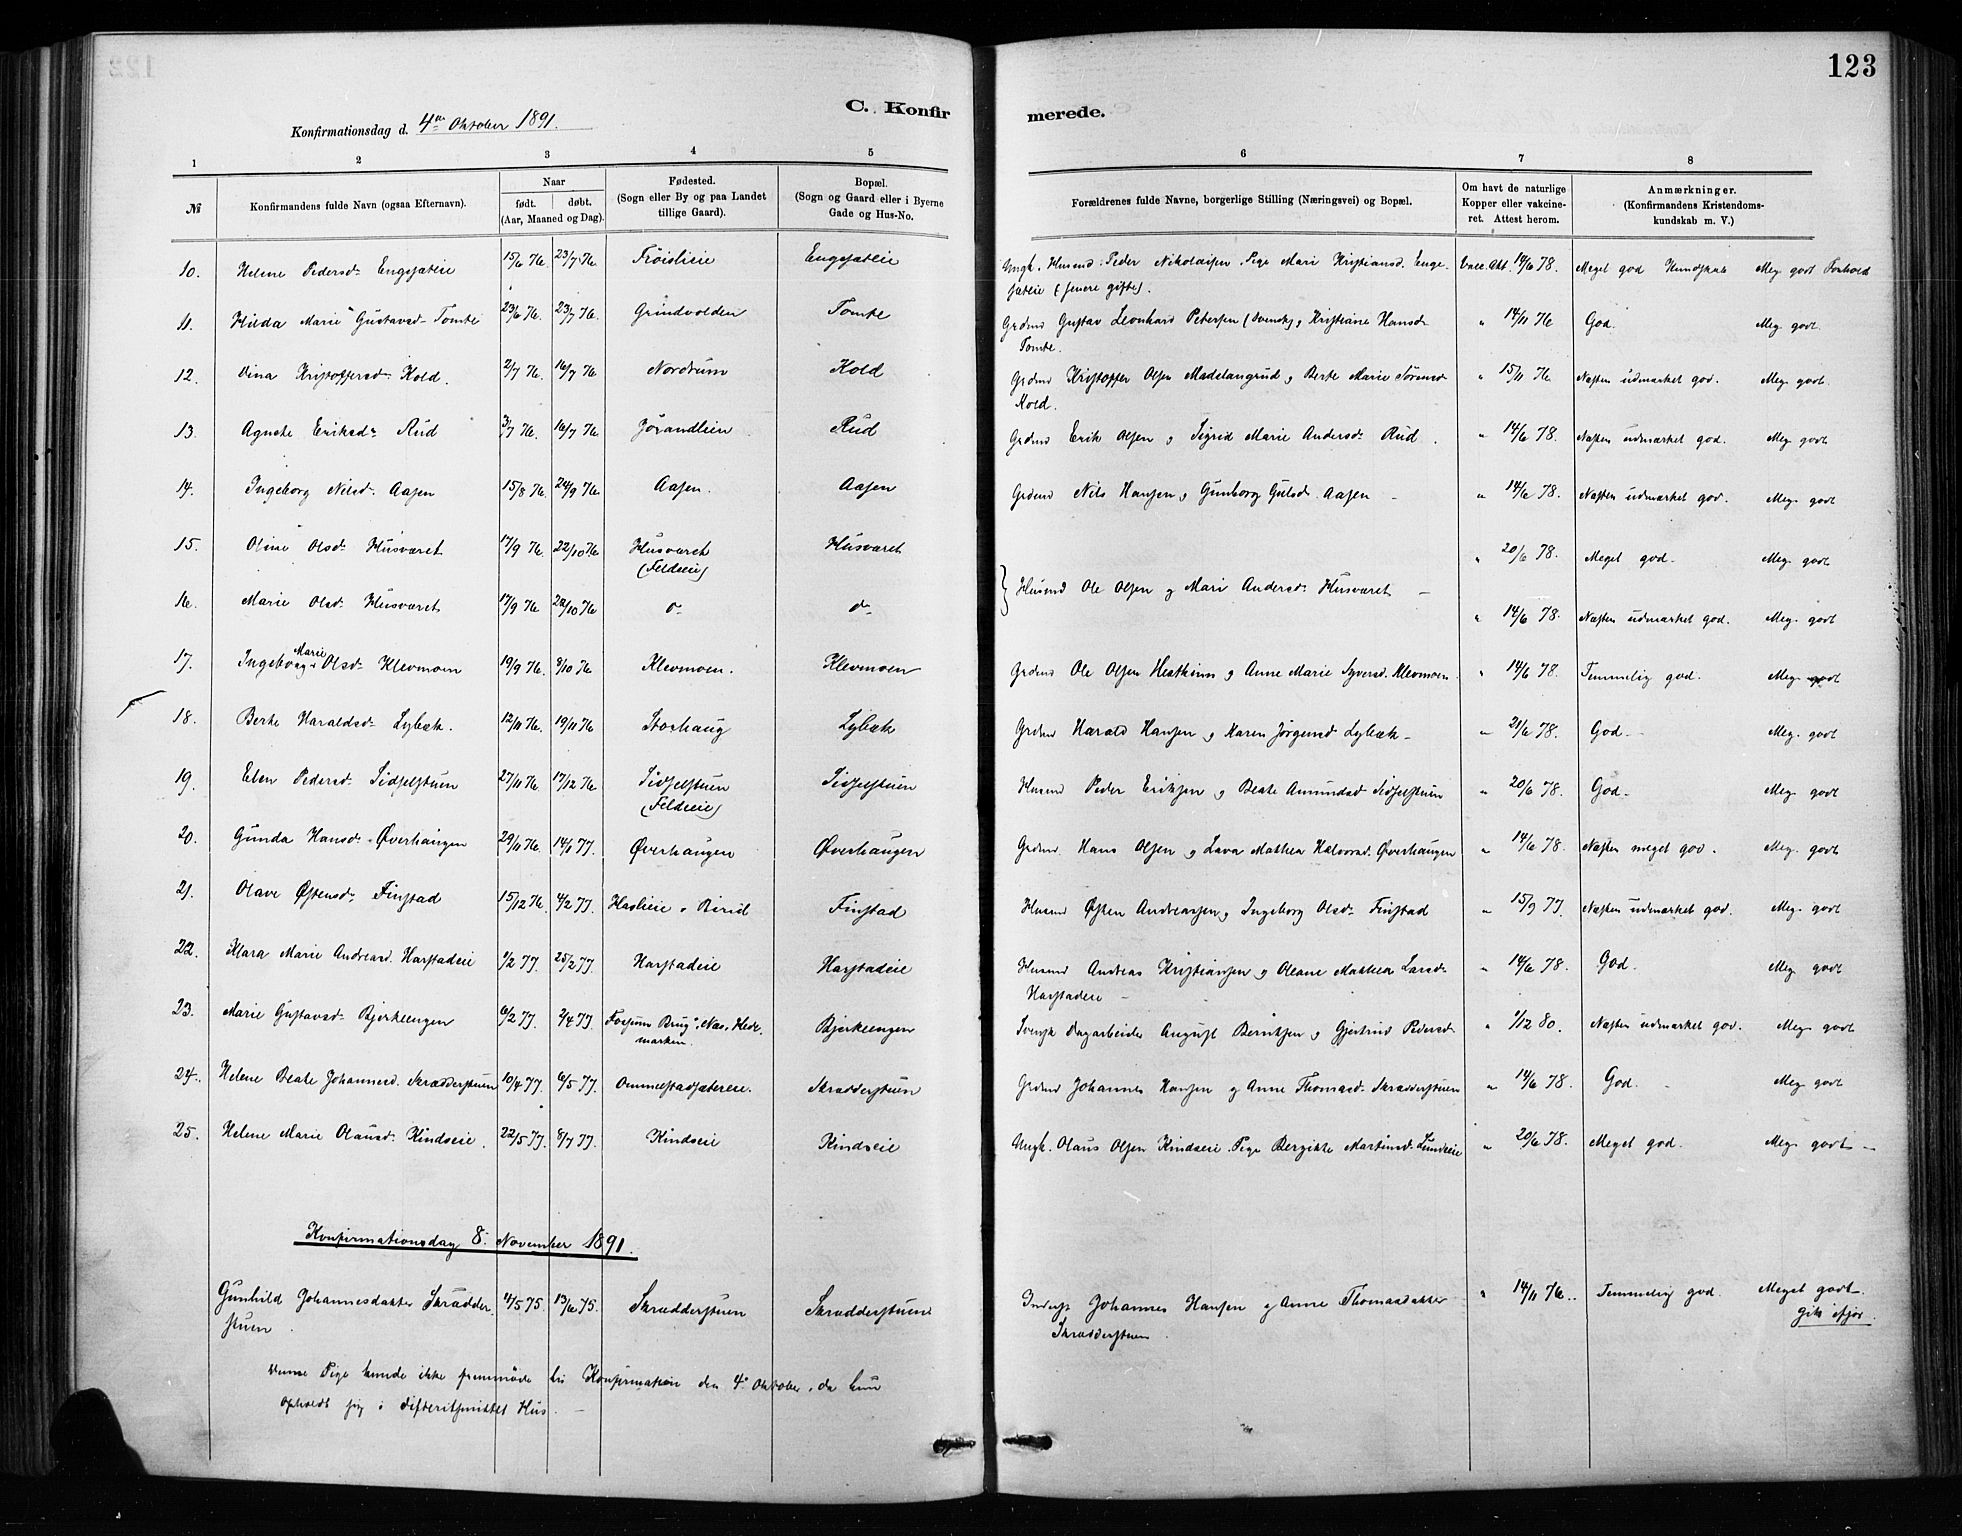 123
C. Konfirmerede.
Konfirmationsdag d. 4de Oktober 1891.
1 2 3 4 5 6 7 8
№ Konfirmandens fulde Navn (ogsaa Efternavn). Naar født. døbt. (Aar, Maaned og Dag). Fødested. (Sogn eller By og paa Landet tillige Gaard). Bopæl. (Sogn og Gaard eller i Byerne Gade og Hus-No. Forældrenes fulde Navne, borgerlige Stilling (Næringsvei) og Bopæl. Om havt de naturlige Kopper eller vakcineret. Attest herom. Anmærkninger. (Konfirmandens Kristendomskundskab m. V.)
10. Helene Pedersd. Engejøteie 15/6 76. 23/7 76. Fröislieie Ungk. Husmd. Peder Nikolaisen. Pige Mari Kristiansd. (senere gifte). Vacc. Att. 14/6 78. Meget god Kundskab Meg. godt Forhold
11. Hilda Marie Gustavsd. Tomte 23/6 76. 23/7 76. Grindvolden Tomte Grdmd Gustav Leonhard Petersen (Svensk) og Kristiane Hansdr Tomte. " 14/11 76 God. Meg. godt.
12. Dina Kristoffersdr Kold. 2/7 76. 16/7 76 Nordrum Kold Grdmd Kristoffer Olsen Madslangrud og Berte Marie Sörensdr Kold. " 15/11 76 Næsten udmærket god. Meg. godt.
13. Agnete Eriksdr Rud 3/7 76. 16/7 76 Jörandlien Rud Grdmd Erik Olsen og Sigrid Marie Andersdr Rud. " 14/6 78. Næsten udmærket god. Meg. godt
14. Ingeborg Nilsdr. Aasen 15/8 76. 24/9 76. Aasen. Aasen Grdmd Nils Hansen og Gunborg Gulsdr. Aasen " 14/6 78. Næsten udmærket god. Meg. godt
15. Oline Olsdr Husværet 17/9 76. 22/10 76 Husværet (Feldseie) Husværet " 20/6 78. Meget god. Meg. godt
} Husmd Ole Olsen og Mari Andersdr. Husværet
16. Marie Olsdr. Husværet 17/9 76. 22/10 76 do do " 14/6 78. Næsten udmærket god. Meg. godt
17. Ingeborg Marie Olsdr Klevmoen 19/9 76. 8/10 76 Klevmoen. Klevmoen Grdmd Ole Olsen Hestkinn og Anne Marie Syversd. Klevmoen. " 14/6 78. Temmelig god. Meg. godt
18. Berte Haraldsdr Lybæk. 12/11 76 19/11 76 Storhaug Lybæk Grdmd Harald Hansen og Karen Jørgensd Lybæk " 21/6 78. God. Meg. godt.
19. Elen Pedersdr Sidselstuen 27/11 76. 17/12 76 Sidselstuen (Feldseie) Sidselstuen Husmd Peder Eriksen og Beate Amundsd Sidselstuen " 20/6 78. God. Meg. godt
20. Gunda Hansdr Øverhaugen 29/11 76. 14/1 77. Øverhaugen Øverhaugen Grdmd. Hans Olsen og Lava Mathea Halvorsd. Øverhaugen " 14/6 78. Næsten meget god. Meg. godt
21. Olave Østensdr Finstad 15/12 76. 4/2 77. Haslieie i Birid Finstad Husmd Østen Andreassen og Ingeborg Olsdr Finstad " 15/9 77. Næsten udmærket god. Meg. godt
22. Klara Marie Andreasd. Harstadeie 1/2 77. 25/2 77. Harstadeie Harstadeie Husmd Andreas Kristiansen og Oleane Mathea Larsdr Harstadeie " 14/6 78. God. Meg. godt
23. Marie Gustavsdr Bjerkeengen 6/2 77. 2/4 77. Fossum Brug i Næs, Hedemarken. Bjerkeengen Svensk Dagarbeider August Berntsen og Gjertrud Pedersdr " 1/12 80. Næsten udmærket god. Meg. godt
24. Helene Beate Johannesd. Skrædderstuen 10/4 77. 6/5 77. Ommelstadsætereie. Skrædderstuen Grdmd Johannes Hansen og Anne Thomasdr Skrædderstuen " 14/6 78. God. Meg. godt
25. Helene Marie Olausdr Kindseie. 22/5 77. 8/7 77. Kindseie Kindseie Ungk. Olaus Olsen Kindseie. Pige Bergitte Martinsdr. Lundseie " 20/6 78. Meget god. Meg. godt
Konfirmationsdag 8. November 1891.
Gunhild Johannesdatter Skrædderstuen. 4/5 75. 13/6 75. Skrædderstuen Skrædderstuen Johannes Hansen og Anne Thomasdatter Skrædderstuen. " 14/11 76. Temmelig god. Meget godt. Gik ifjor.
Denne Pige kunde ikke fremmöde til Konfirmation den 4de Oktober, da hun
opholdt sig i difteritsmittet Hus.